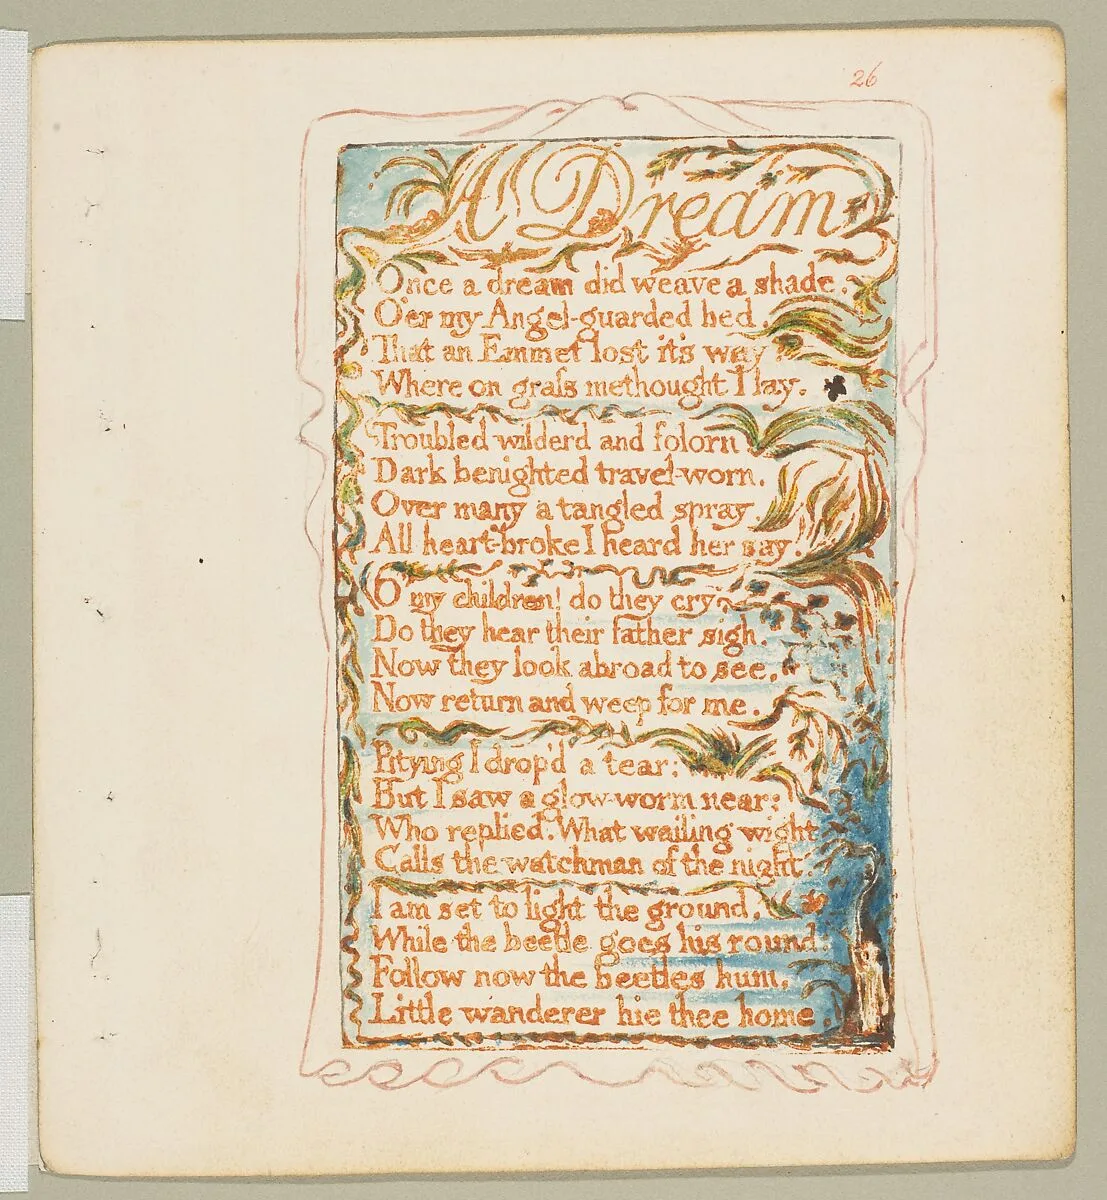 26
A Dream
Once a dream did weave a shade.
O'er my Angel-guarded bed.
That an Emmet lost it's way
Where on grass methought I lay.
Troubled wilderd and folorn
Dark benighted travel-worn.
Over many a tangled spray
All heart-broke I heard her say.
O my children! do they cry
Do they hear their father sigh.
Now they look abroad to see,
Now return and weep for me.
Pitying I drop'd a tear:
But I saw a glow-worm near:
Who replied. What wailing wight
Calls the watchman of the night.
I am set to light the ground,
While the beetle goes his round:
Follow now the beetles hum,
Little wanderer hie thee home.